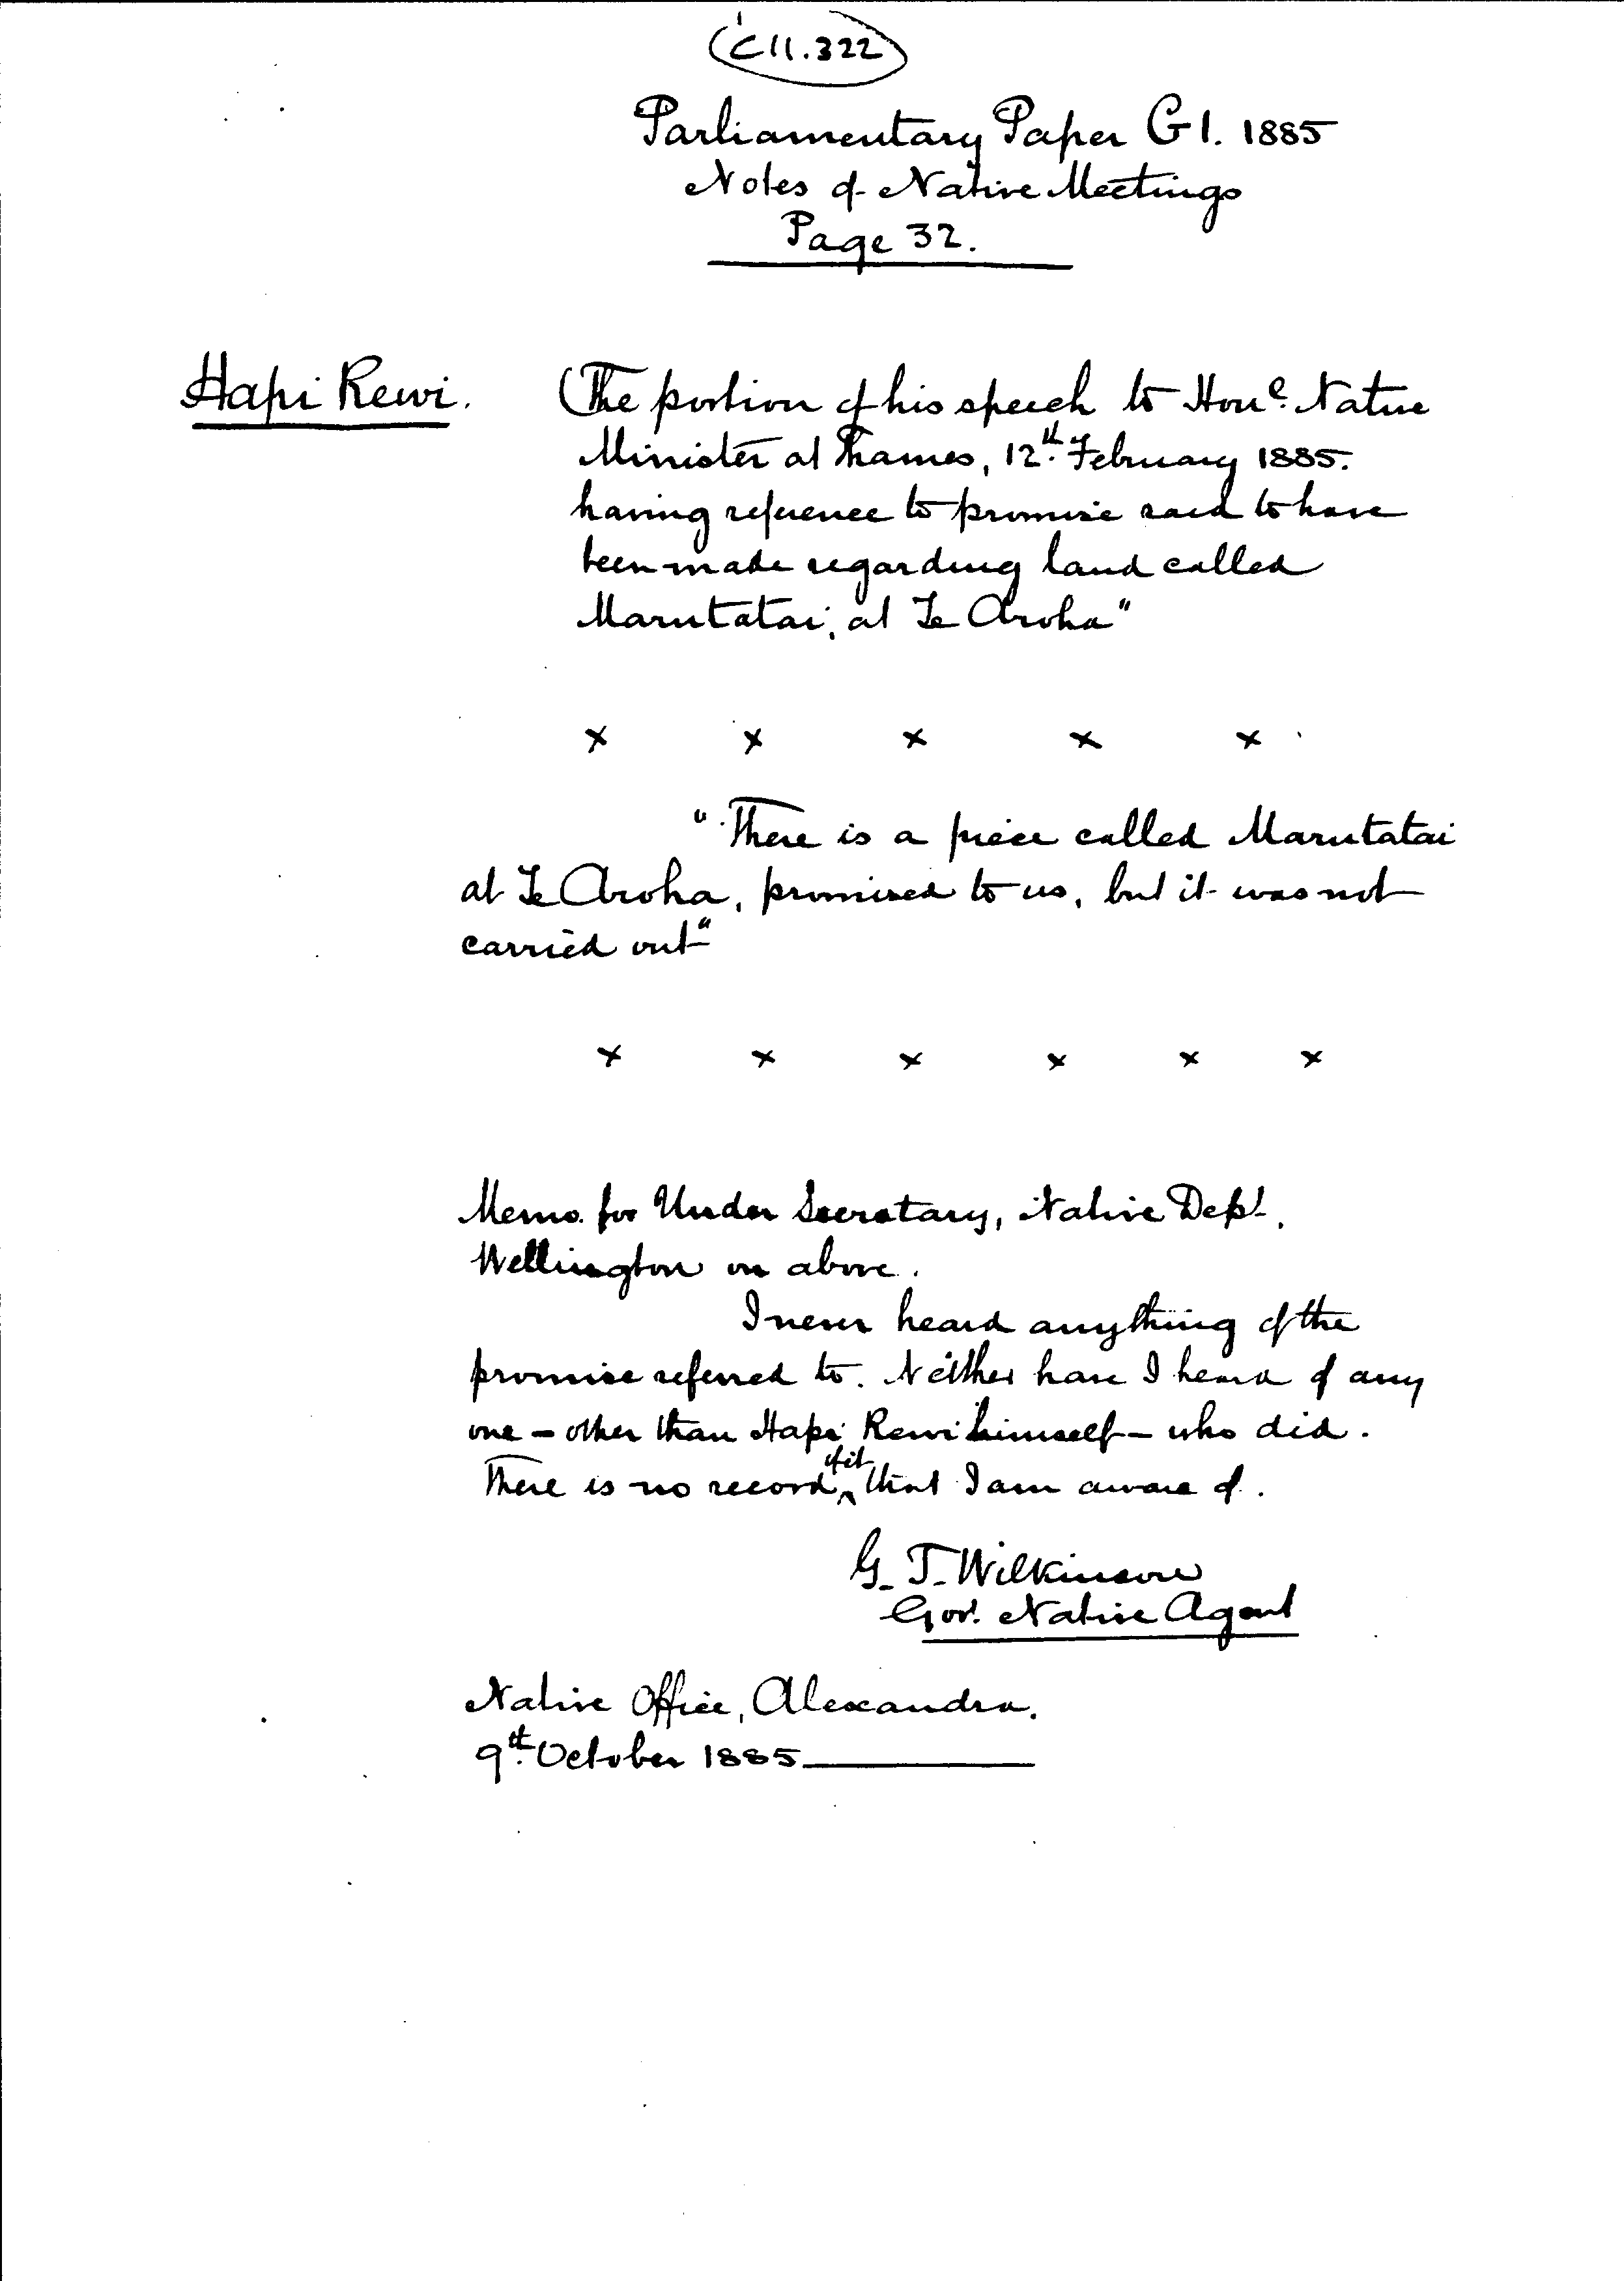 C11.322
Parliamentary Paper G1. 1885
Notes of Native Meetings
Page 32.
Hapi Rewi. (The portion of his speech to Hon^e. Native
Minister at Thames, 12th. February 1885.
having reference to promise said to have
been made regarding land called
Marutatai, at Te Aroha"
x x x x x
"There is a piece called Marutatai
at Te Aroha, promised to us, but it was not
carried out"
x x x x x x
Memo. for Under Secretary, Native Dept.,
Wellington on above.
I never heard anything of the
promise referred to. Neither have I heard of any
one - other than Hapi Rewi himself - who did.
There is no record of it that I am aware of.
G. T. Wilkinson
Govt. Native Agent
Native Office, Alexandra.
9th. October 1885